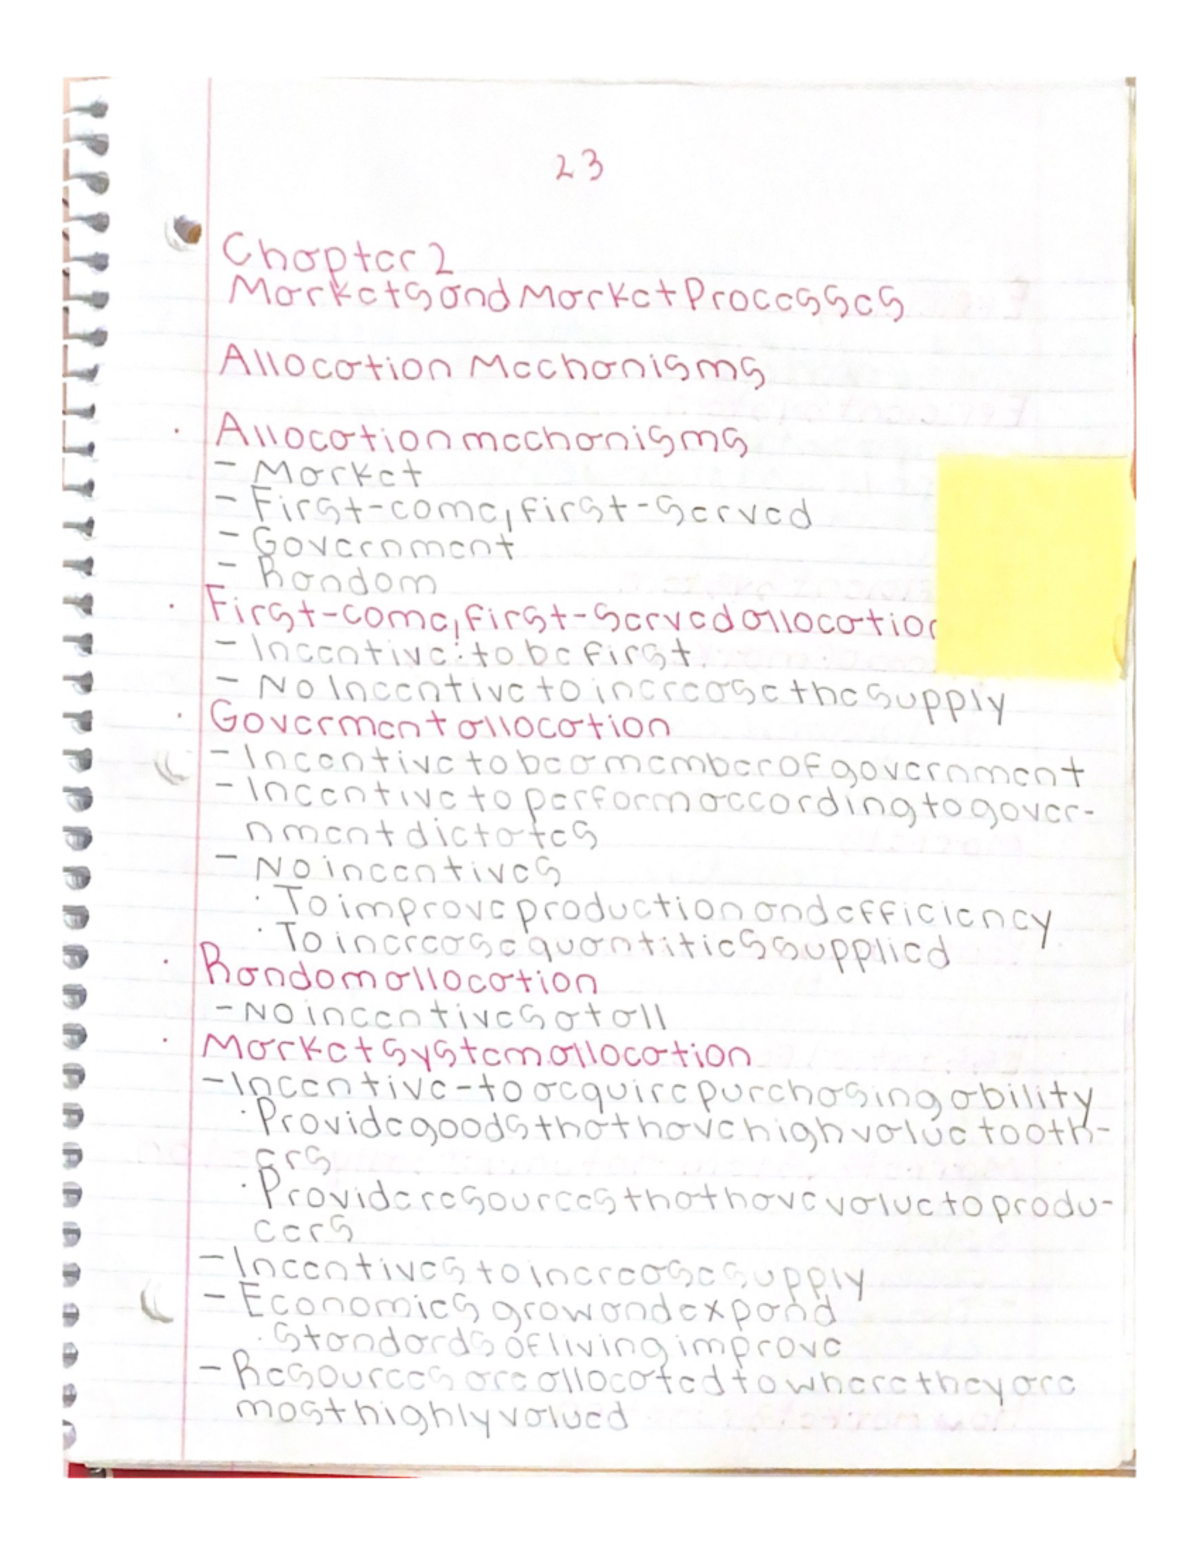 23
Chapter 2
Markets and Market Processes
Allocation Mechanisms
· Allocation mechanisms
- Market
- First-come, first-served
- Government
- Random
· First-come, first-served allocation
- Incentive: to be first
- No Incentive to increase the supply
· Goverment allocation
- Incentive to be a member of government
- Incentive to perform according to gover-
nment dictates
- No incentives
· To improve production and efficiency
· To increase quantities supplied
· Random allocation
- No incentives at all
· Market system allocation
- Incentive - to acquire purchasing ability
· Provide goods that have high value to oth-
ers
· Provide resources that have value to produ-
cers
- Incentives to increase supply
- Economies grow and expand
· Standards of living improve
- Resources are allocated to where they are
most highly valued